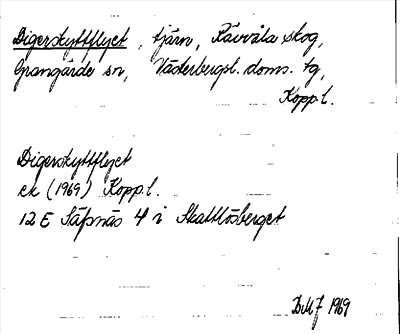 Digerskyttflyet, tjärn, Rävvåla skog,
Grangärde sn, Västerbergsl. doms. tg,
Kopp.l.
Digerskyttflyet
ek (1969) Kopp.l.
12 E Säfsnäs 4 i Skattlösberget
BMJ 1969